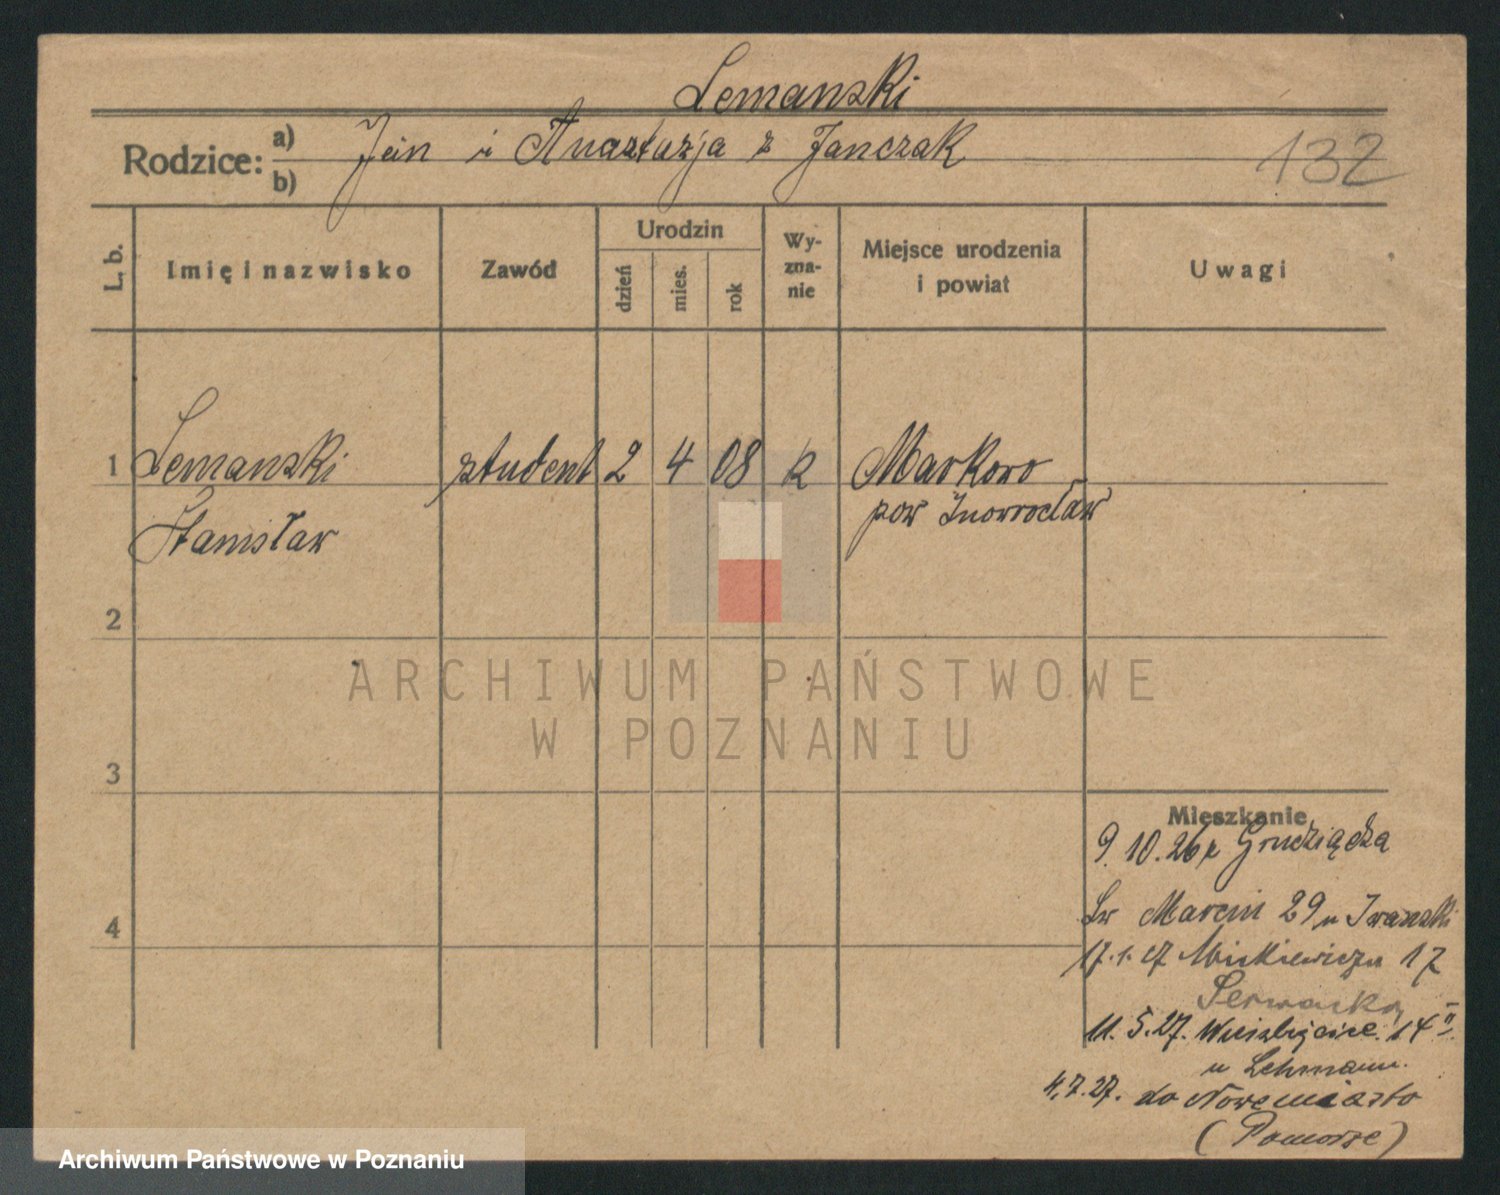 Lemanski
Rodzice: a) b) Jan i Anastazja z Janczak
132
L. b.
Imię i nazwisko
Zawód
Urodzin
dzień
mies.
rok
Wy-
zna-
nie
Miejsce urodzenia
i powiat
Uwagi
1 Lemanski student 2 4 08 k Markowo
Stanisław pow Inowrocław
2
ARCHIWUM PAŃSTWOWE
W POZNANIU
3
Mieszkanie
9.10.26 z Grudziądza
4
Św Marcin 29 u Iwanski
17.1.27 Mickiewicza 17
11.5.27. Wierzbięcice 14 II
u Lehmann.
4.7.27. do Nowemiasto
(Pomorze)
Archiwum Państwowe w Poznaniu